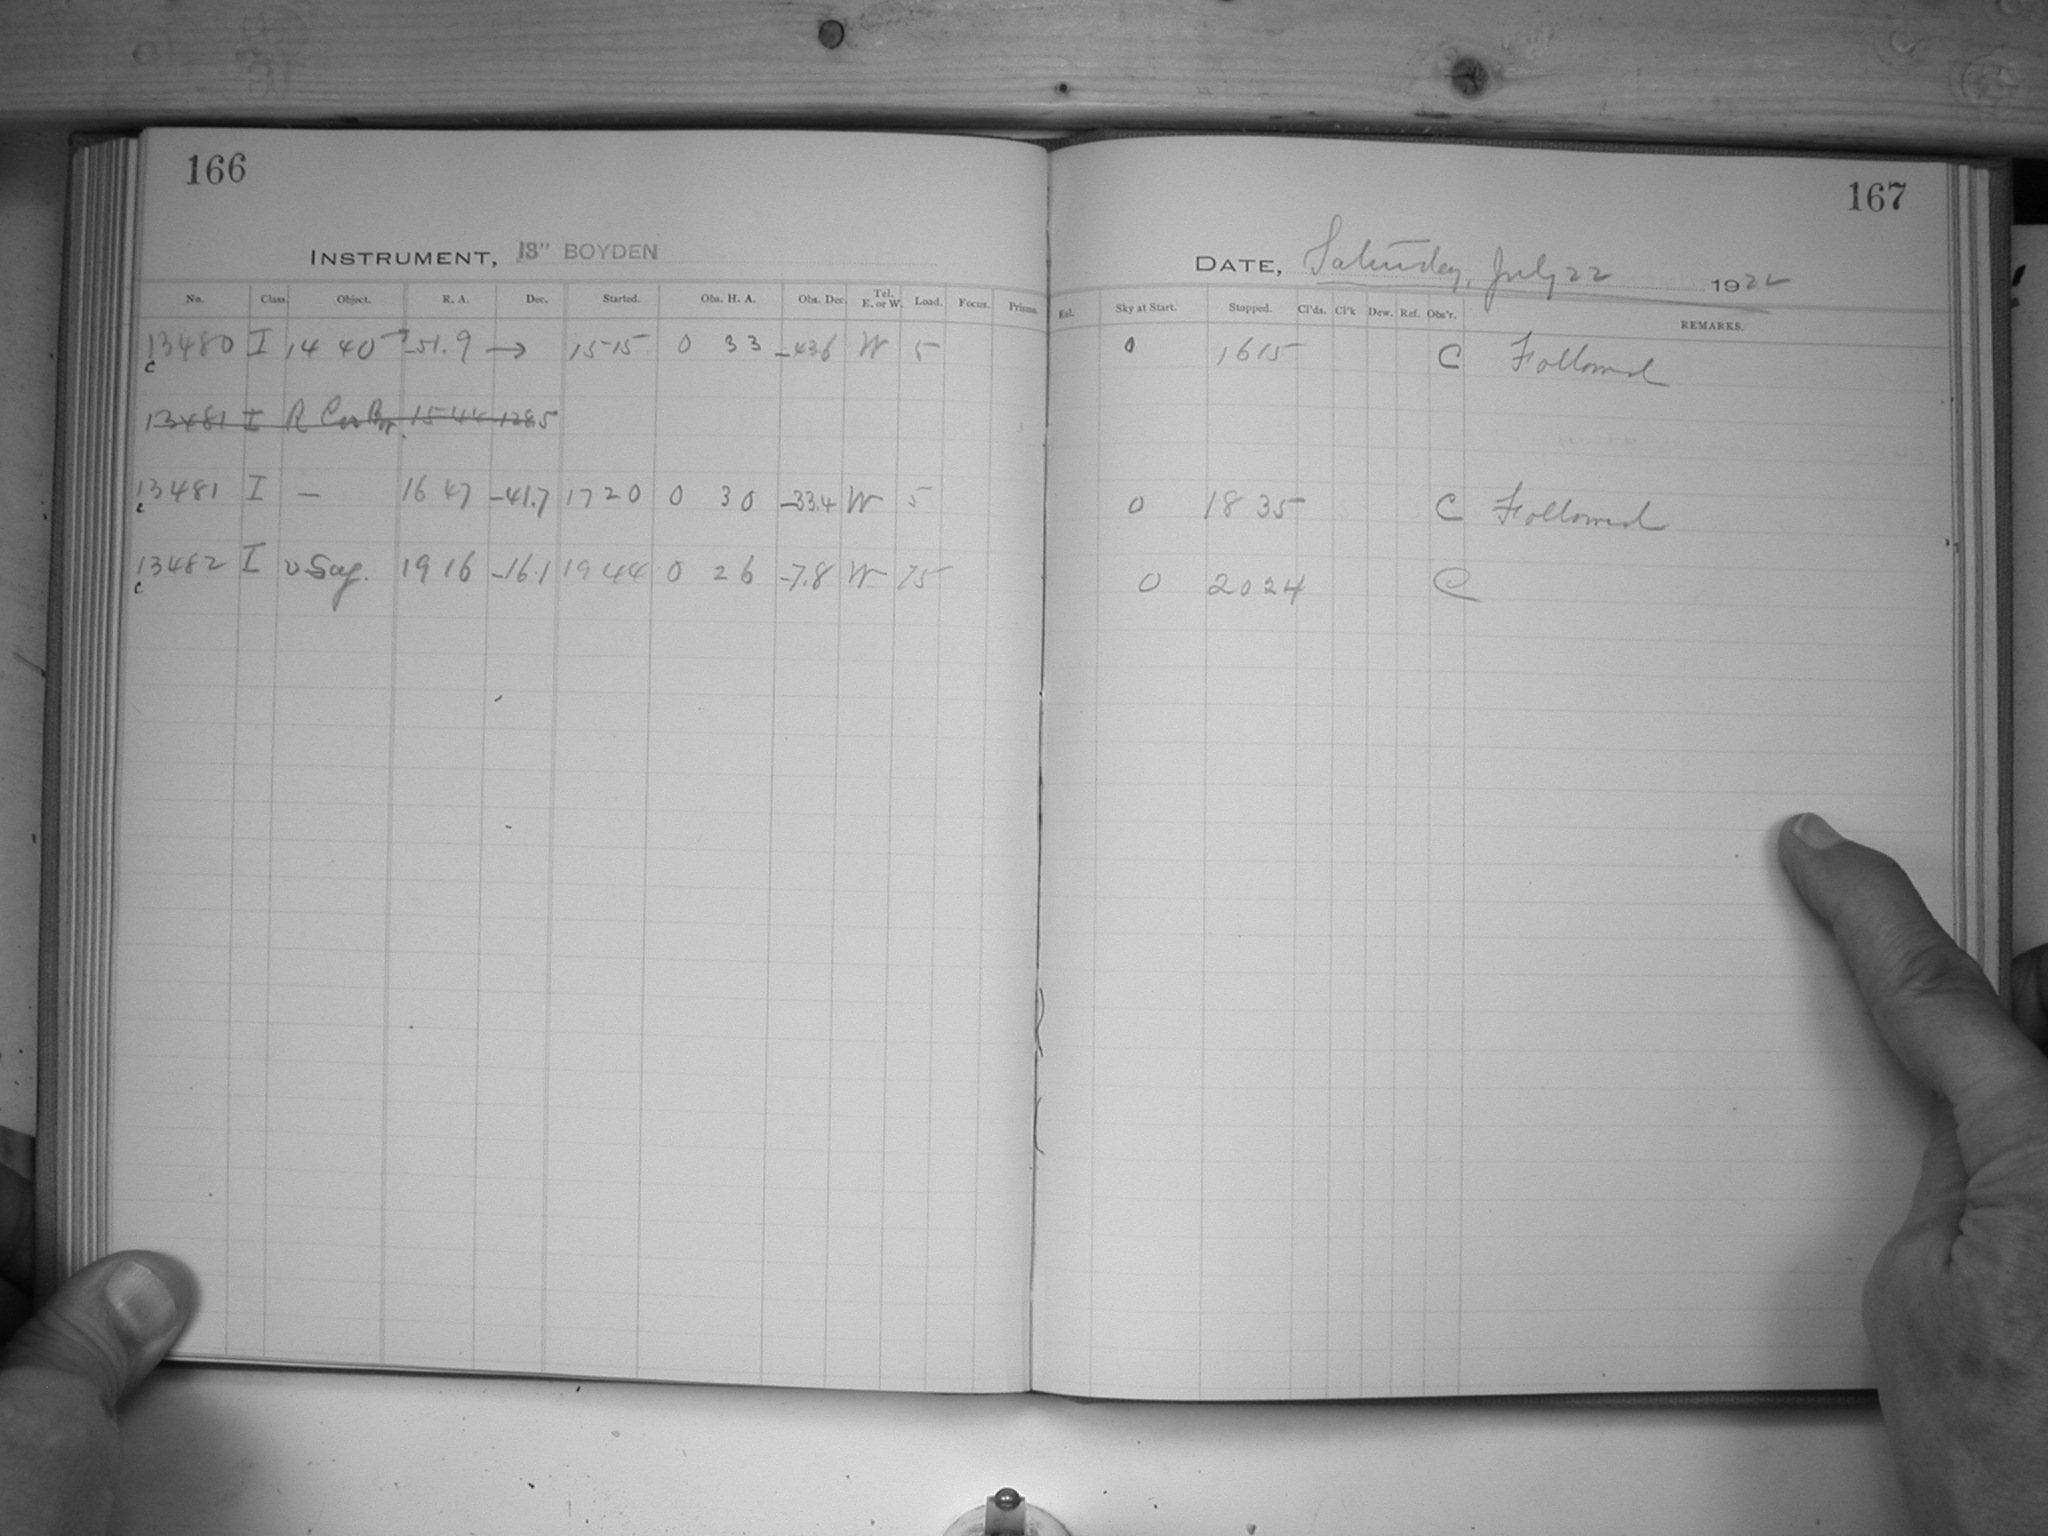 166
INSTRUMENT, 13" BOYDEN
No. Class. Object. R. A. Dec. Started. Obs. H. A. Obs. Dec. Tel. E. or W. Load. Focus. Prisms.
13480 I 14 40 -51.9 → 15 15 0 33 -43.6 W 5
c
13481 I R Cor Br. 15 44 +28.5
13481 I — 16 47 -41.7 17 20 0 30 -33.4 W 5
c
13482 I υ Sag. 19 16 -16.1 19 44 0 26 -7.8 W 15
c
167
DATE, Saturday, July 22 1922
Exl. Sky at Start. Stopped. Cl'ds. Cl'k Dew. Ref. Obs'r. REMARKS.
0 16 15 C Followed
0 18 35 C Followed
0 20 24 C